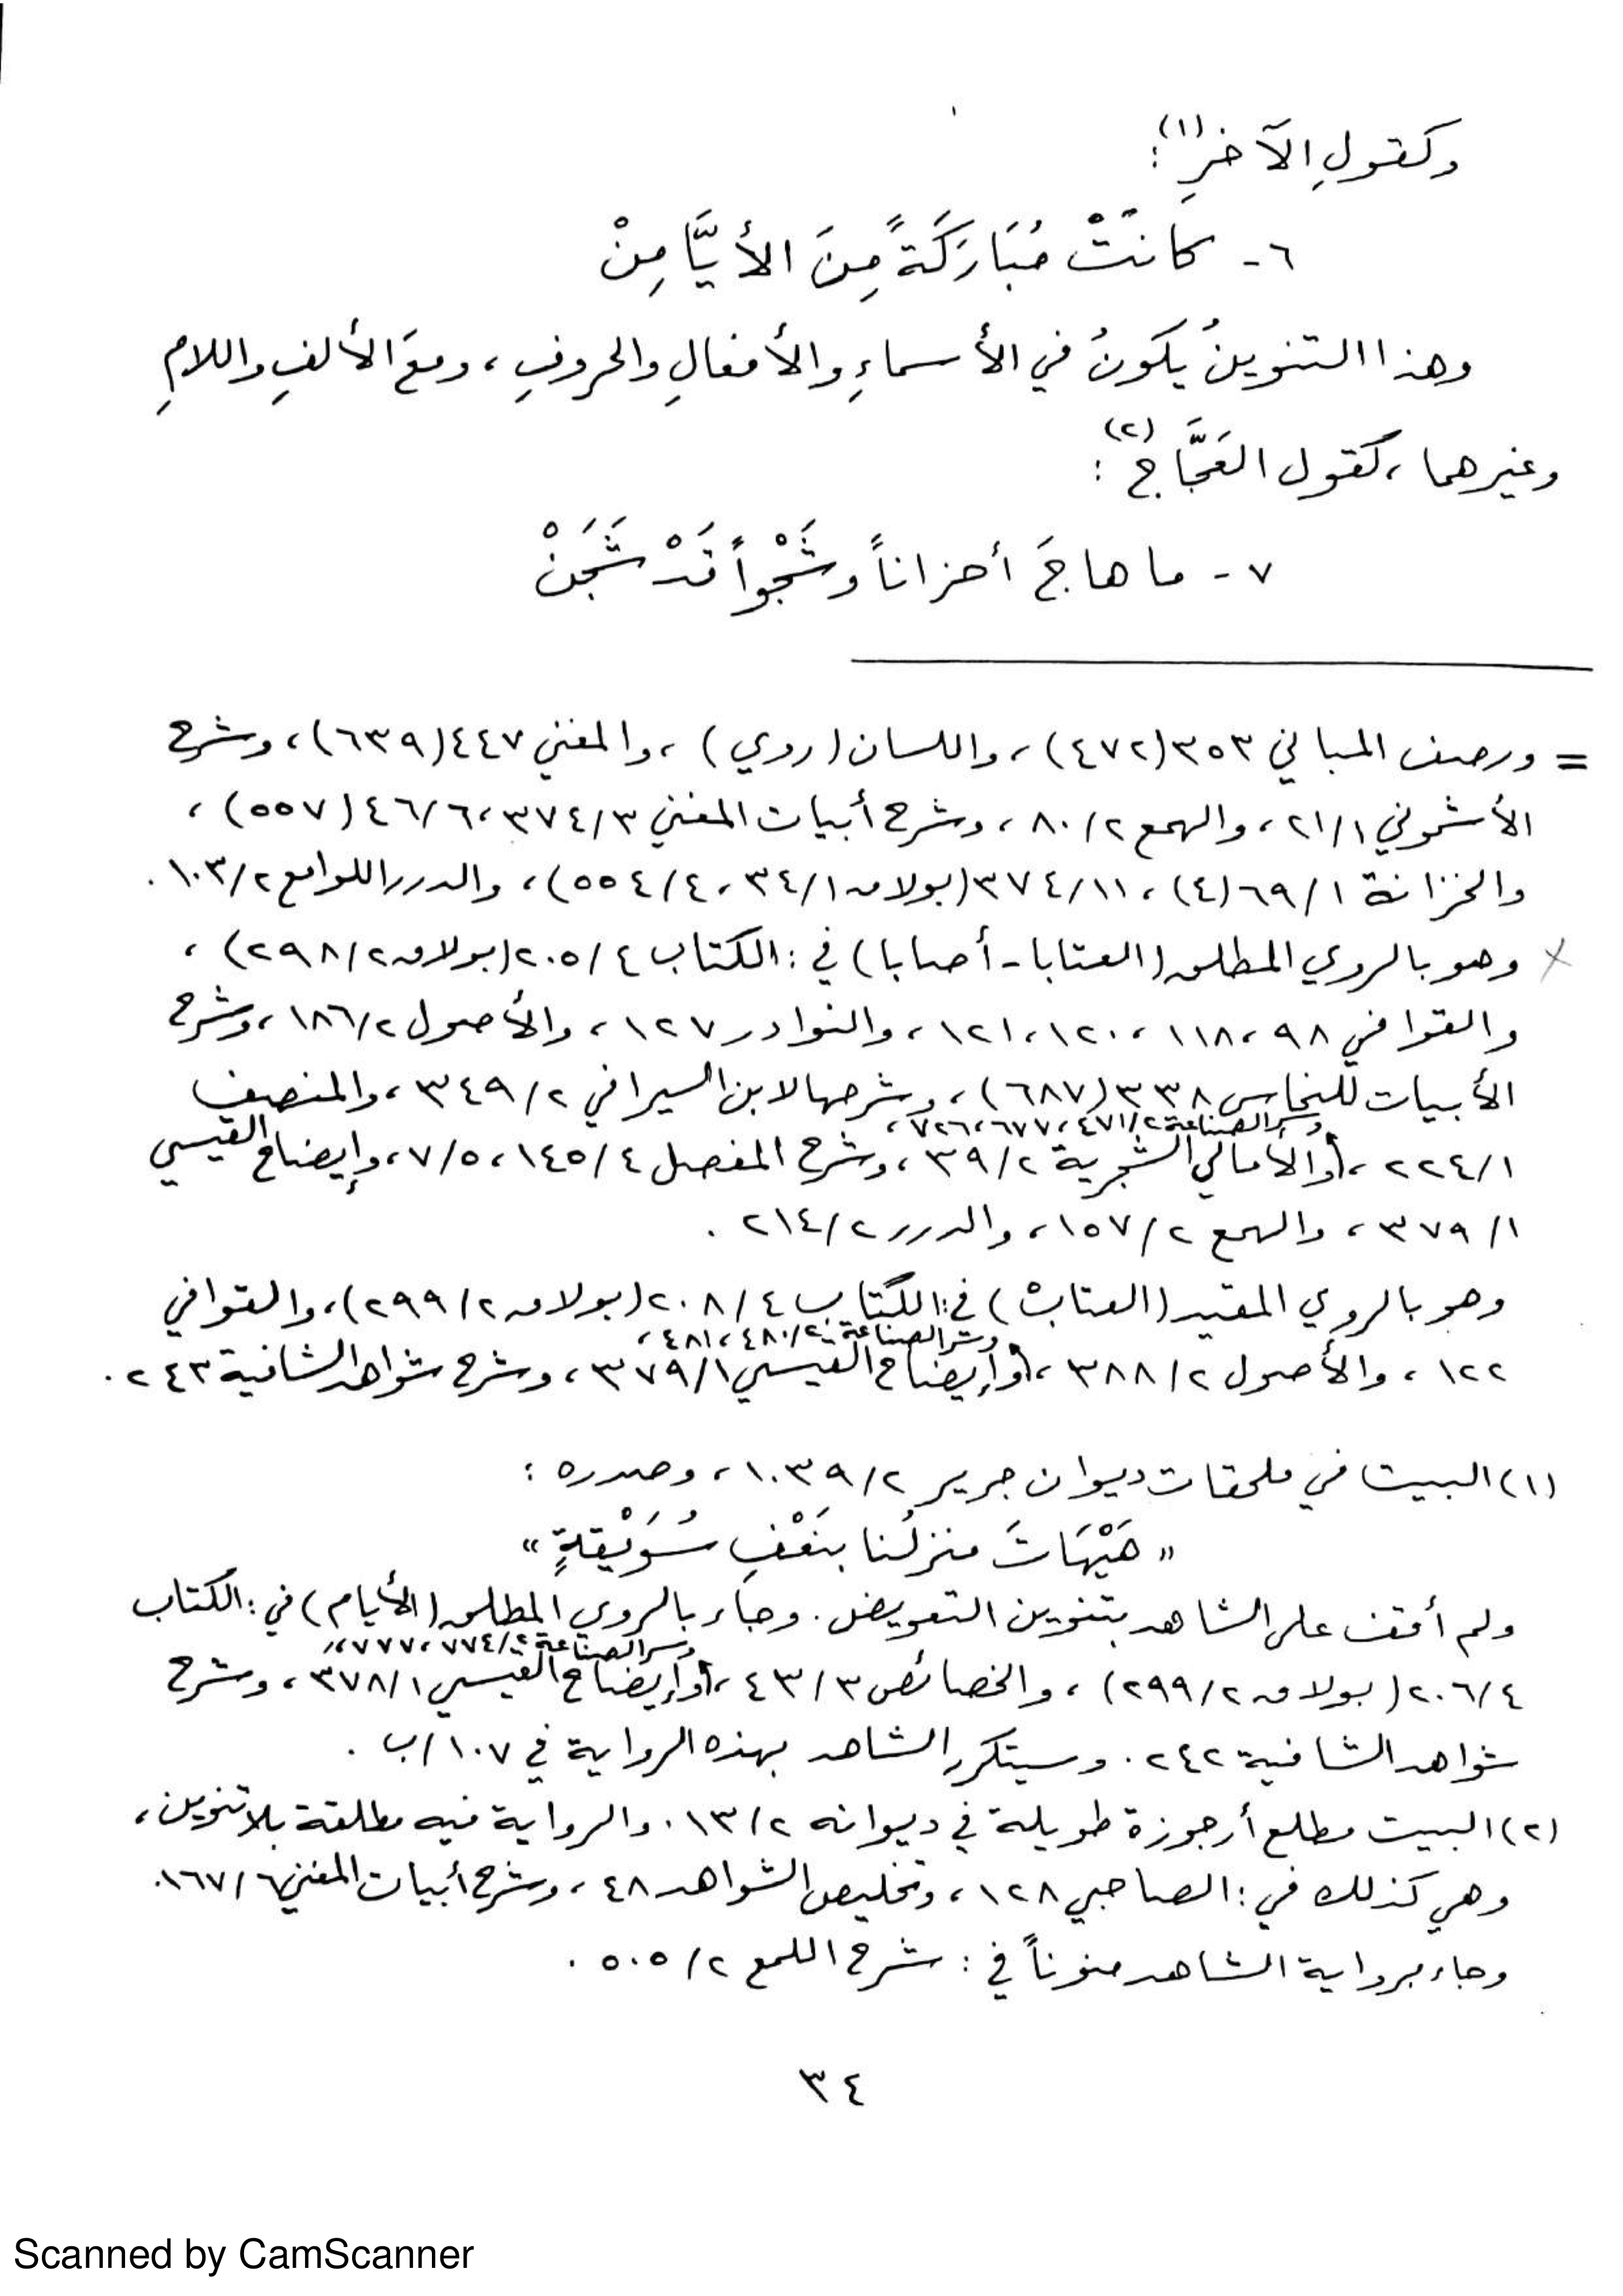 وكقولِ الآخرِ(١):
٦- كانَتْ مُبَارَكَةً مِنَ الأيَّامِنْ
وهذا التنوينُ يكونُ في الأسماءِ والأفعالِ والحروفِ، ومعَ الألفِ واللامِ
وغيرهما، كقول العَجَّاج(٢):
٧- ما هاجَ أحزاناً وشَجْواً قَدْ شَجَنْ
= ورصف المباني ٣٥٣(٤٧٢)، واللسان (روي)، والمغني ٤٤٧(٦٣٩)، وشرح
الأشموني ٢١/١، والهمع ٨٠/٢، وشرح أبيات المغني ٣٧٤/٣، ٤٦/٦(٥٥٧)،
والخزانة ٦٩/١(٤)، ٣٧٤/١١(بولاق ٣٤/١، ٥٥٤/٤)، والدرر اللوامع ١٠٣/٢.
× وهو بالروي المطلق (العتابا - أصابا) في: الكتاب ٢٠٥/٤(بولاق ٢٩٨/٢)،
والقوافي ٩٨، ١١٨، ١٢٠، ١٢١، والنوادر ١٢٧، والأصول ١٨٦/٢، وشرح
الأبيات للنحاس ٣٣٨(٦٨٧)، وشرحها لابن السيرافي ٣٤٩/٢، والمنصف
وسر الصناعة ٤٧١/٢، ٦٧٧، ٧٢٦،
٢٢٤/١، والأمالي الشجرية ٣٩/٢، وشرح المفصل ١٤٥/٤، ٧/٥، وإيضاح القيسي
٣٧٩/١، والهمع ١٥٧/٢، والدرر ٢١٤/٢.
وهو بالروي المقيد (العتابْ) في: الكتاب ٢٠٨/٤(بولاق ٢٩٩/٢)، والقوافي
وسر الصناعة ٤٨٠/٢، ٤٨١،
١٢٢، والأصول ٣٨٨/٢، وإيضاح القيسي ٣٧٩/١، وشرح شواهد الشافية ٢٤٣.
(١) البيت في ملحقات ديوان جرير ١٠٣٩/٢، وصدره:
« هَيْهَاتَ منزلُنا بنَعْفِ سُوَيْقةٍ »
ولم أقف على الشاهد بتنوين التعويض. وجاء بالروي المطلق (الأيام) في: الكتاب
وسر الصناعة ٧٧٤/٢، ٧٧٧،
٢٠٦/٤(بولاق ٢٩٩/٢)، والخصائص ٤٣/٣، وإيضاح القيسي ٣٧٨/١، وشرح
شواهد الشافية ٢٤٢. وسيتكرر الشاهد بهذه الرواية في ١٠٧/ب.
(٢) البيت مطلع أرجوزة طويلة في ديوانه ١٣/٢. والرواية فيه مطلقة بلا تنوين،
وهي كذلك في: الصاحبي ١٢٨، وتخليص الشواهد ٤٨، وشرح أبيات المغني ١٦٧/٦.
وجاء برواية الشاهد منوناً في: شرح اللمع ٥٠٥/٢.
٣٤
Scanned by CamScanner